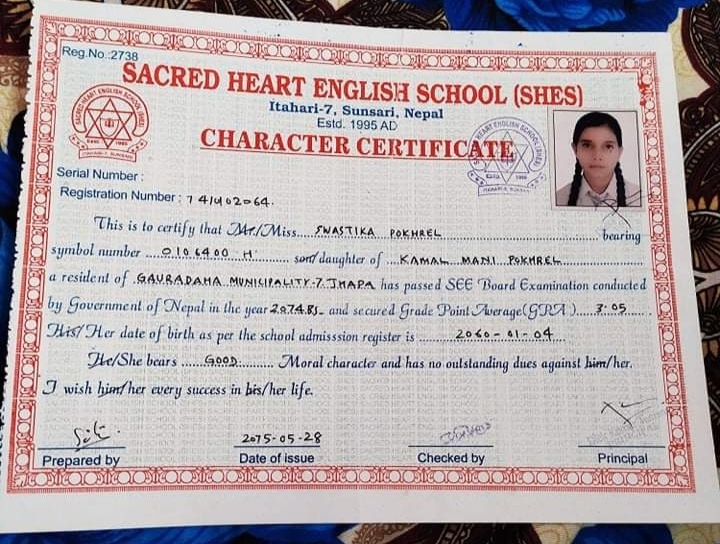 Reg.No.:2738
SACRED HEART ENGLISH SCHOOL (SHES)
Itahari-7, Sunsari, Nepal
Estd. 1995 AD
CHARACTER CERTIFICATE
SACRED HEART ENGLISH SCHOOL (SHES)
ESTD. 1995
ITAHARI-7, SUNSARI
HEART ENGLISH SCHOOL (SHES)
ESTD. 1995
Serial Number :
Registration Number : 741402064.
This is to certify that Mr./Miss. SWASTIKA POKHREL bearing
symbol number 0106400 H son/daughter of KAMAL MANI POKHREL
a resident of GAURADAHA MUNICIPALITY-7, JHAPA has passed SEE Board Examination conducted
by Government of Nepal in the year 2074 BS and secured Grade Point Average(GPA) 3.05
His/Her date of birth as per the school admisssion register is 2060-01-04
He/She bears GOOD Moral character and has no outstanding dues against him/her.
I wish him/her every success in his/her life.
2075-05-28
Prepared by Date of issue Checked by Principal